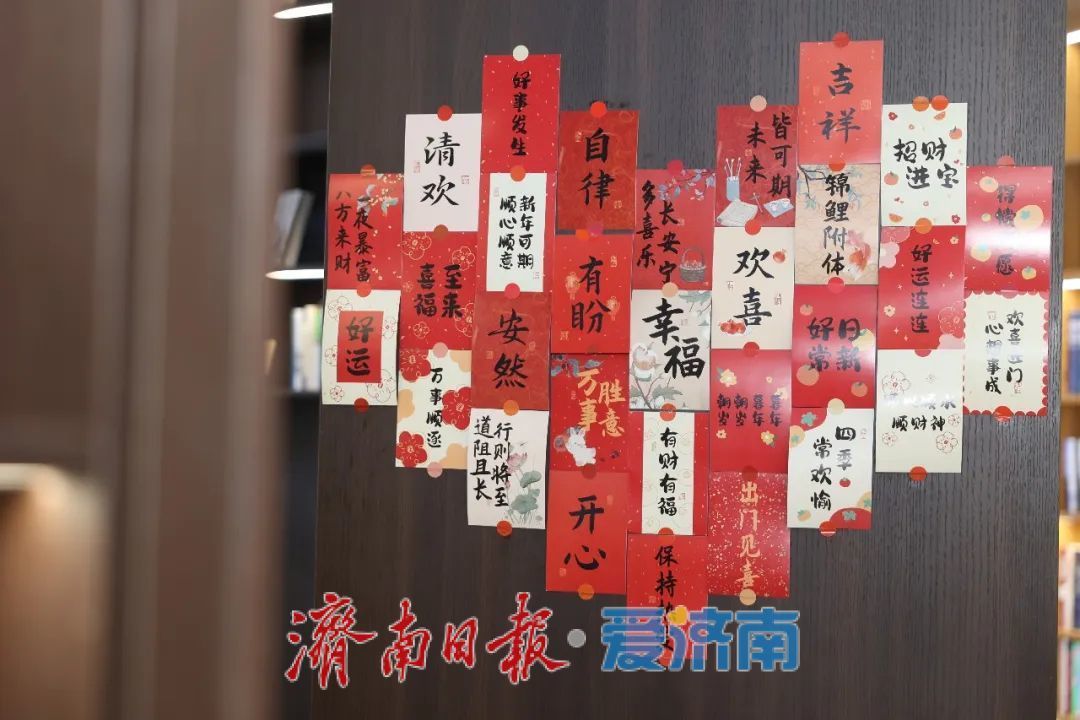 一夜暴富
八方来财
好运
清欢
喜至
福来
万事顺遂
好事发生
新年可期
顺心顺意
安然
道阻且长
行则将至
自律
有盼
万事
胜意
开心
多喜乐
长安宁
幸福
有财有福
保持
未来
皆可期
欢喜
出门见喜
吉祥
锦鲤附体
好日
常新
四季
常欢愉
招财
进宝
好运连连
顺财神
欢喜进门
心想事成
濟南日报·爱济南